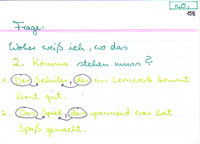 Frage:
Woher weiß ich, wo das
2. Komma stehen muss?
1. Der Schüler, der ins Lernwerk kommt
lernt gut.
2. Das Spiel, das spannend war hat
Spaß gemacht.